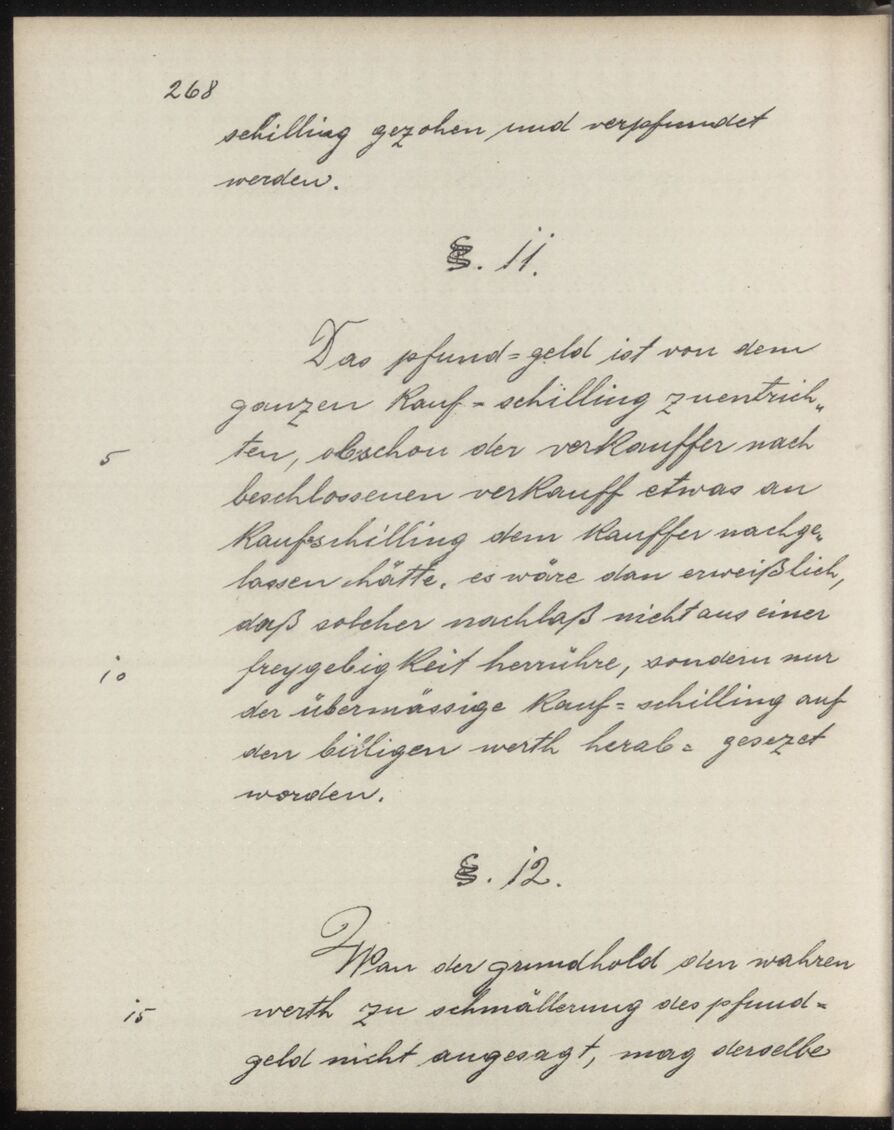 268
schilling gezohen und verpfundet
werden.
§. 11.
Das pfund=geld ist von dem
ganzen Kauf=schilling zuentrich„
5 ten, obschon der verKauffer nach
beschlossenen verKauff etwas an
Kauf=schilling dem Kauffer nachge„
lassen hätte, es wäre dan erweißlich,
daß solcher nachlaß nicht aus einer
10 freygebigKeit herrühre, sondern nur
der übermässige Kauf=schilling auf
den billigen werth herab=gesezet
worden.
§. 12.
Wan der grundhold den wahren
15 werth zu schmällerung des pfund=
geld nicht angesagt, mag derselbe